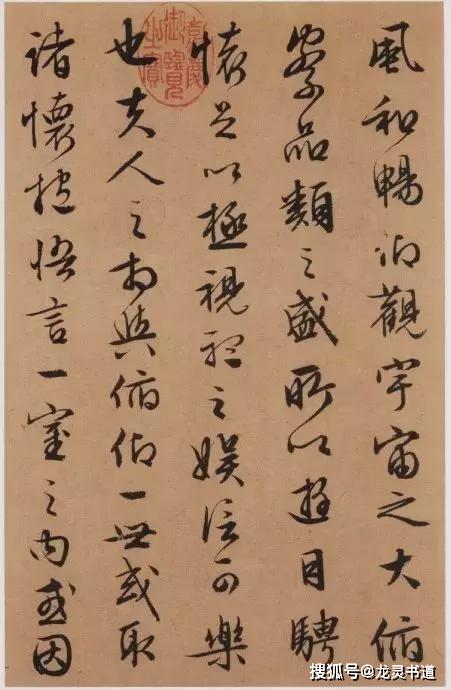 風和暢仰觀宇宙之大俯
察品類之盛所以遊目騁
懷足以極視聽之娛信可樂
也夫人之相與俯仰一世或取
諸懷抱悟言一室之內或因
御覽
之寶
搜狐号@龙灵书道